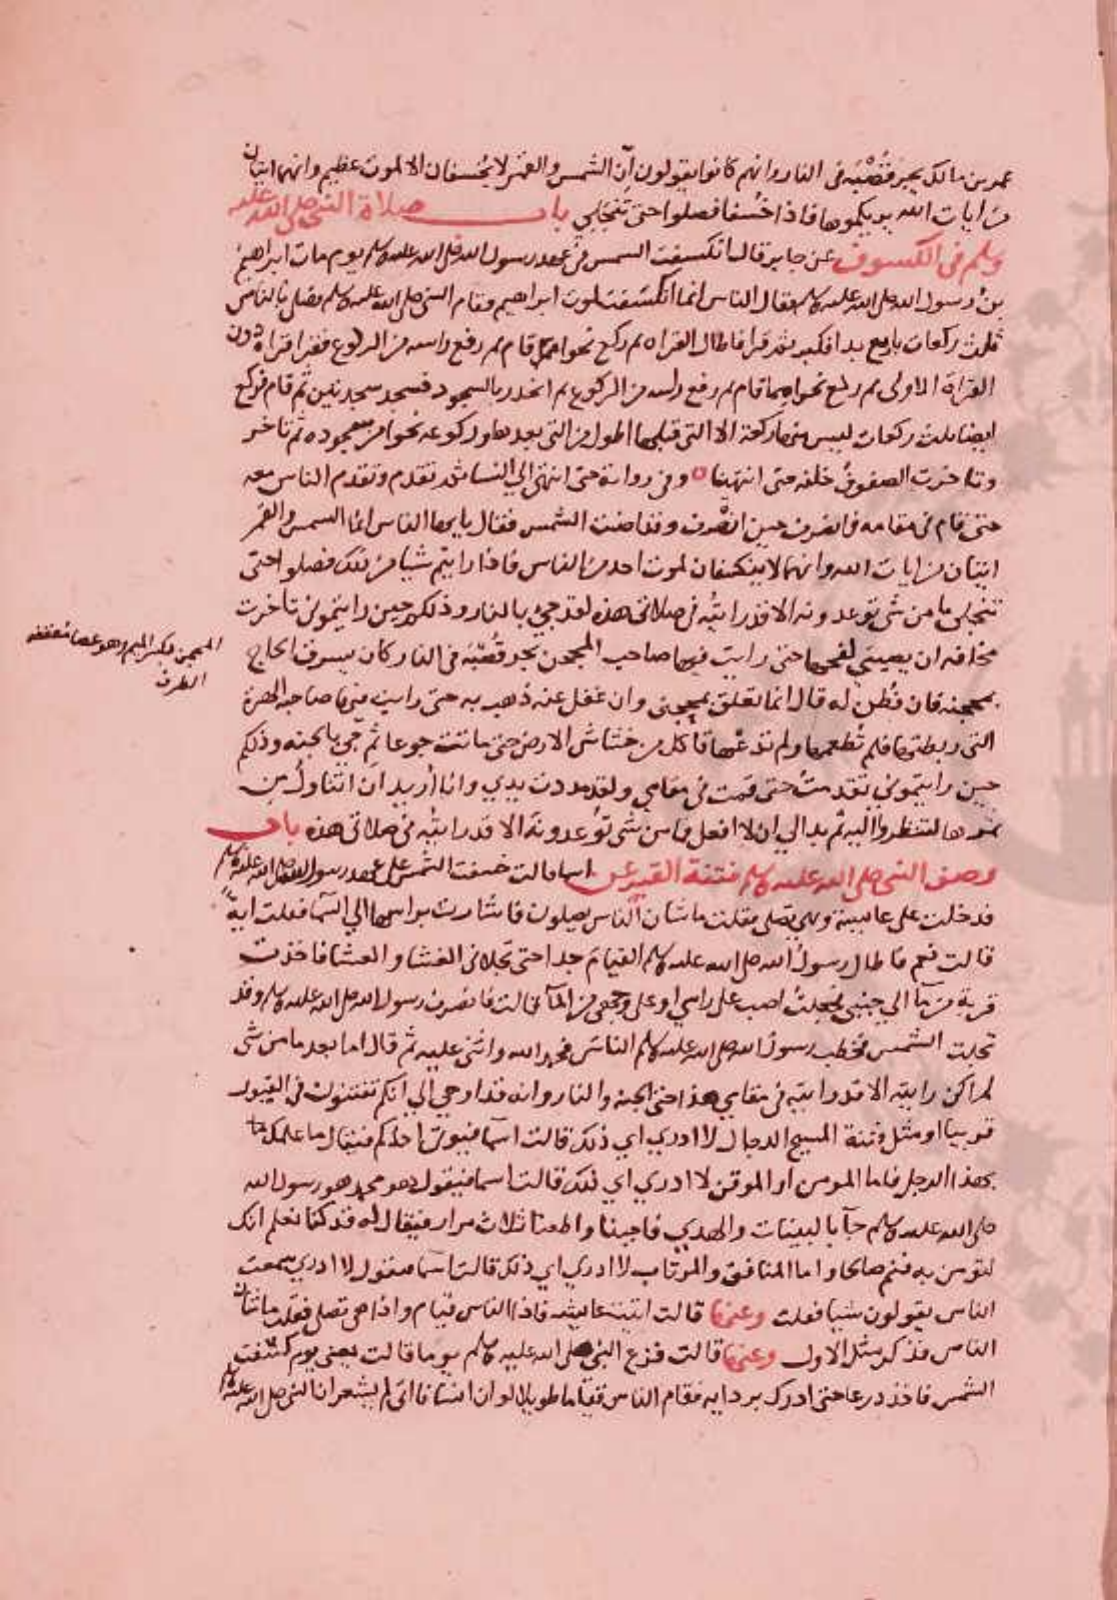 عمرو بن مالك يجر قُصْبَه في النار وانهم كانوا يقولون اِن الشمس والقمر لا يخسفان الا لموت عظيم وانهما ايتان
من ايات الله يريكموها فاذا خُسفا فصلوا حتى تنجلي باب صلاة النبي صلى الله عليه
وسلم في الكسوف عن جابر قال انكسفت الشمس في عهد رسول الله صلى الله عليه وسلم يوم مات ابراهيم
بن رسول الله صلى الله عليه وسلم فقال الناس انما انكسفت لموت ابراهيم فقام النبي صلى الله عليه وسلم فصلى بالناس
ثلاث ركعات باربع بدا فكبر ثم قرا فاطال القراه ثم ركع نحوا مما قام ثم رفع راسه من الركوع فقرا قراة دون
القراة الاولى ثم ركع نحوا مما قام ثم رفع راسه من الركوع ثم انحدر بالسجود فسجد سجدتين ثم قام فركع
ايضا ثلث ركعات ليس منها ركعة الا التي قبلها اطول من التي بعدها وركوعه نحوا من سجوده ثم تاخر
وتاخرت الصفوفُ خلفه حتى انتهينا ٥ وفي رواية حتى انتهى الي النسا ثم تقدم وتقدم الناس معه
حتى قام في مقامه فانصرف حين انصرف وقد اضت الشمس فقال يا ايها الناس انما الشمس والقمر
ايتان من ايات الله وانهما لا ينكسفان لموت احد من الناس فاذا رايتم شيا من ذلك فصلوا حتى
تنجلي ما من شي توعدونه الا قد رايته في صلاتي هذه لقد جيء بالنار وذلكم حين رايتموني تاخرت
مخافه ان يصيبني لفحها حتى رايت فيها صاحب المحجن يجر قُصْبَه في النار كان يسرق الحاج
المحجن بكسر الميم وهو عصا معقفه
الطرف
بمحجنه فان فُطن له قال انما تعلق بمحجني وان غفل عنه ذهب به حتى رايت فيها صاحبه الهرة
التي ربطتها فلم تُطعمها ولم تدعها تاكل من خشاش الارض حتى ماتت جوعا ثم جيء بالجنه وذلكم
حين رايتموني تقدمتُ حتى قمت في مقامي ولقد مددت يدي وانا اُريد ان اتناول من
ثمرها لتنظروا اليه ثم بدا لي ان لا افعل فما من شي توعدونه الا قد رايته في صلاتي هذه باب
وصف النبي صلى الله عليه وسلم فتنة القبر عن اسما قالت خسفت الشمس على عهد رسول الله صلى الله عليه وسلم
فدخلت على عايشة وهي تصلي فقلت ما شان الناس يصلون فاشارت براسها الي السما فقلت ايه
قالت نعم فاطال رسولُ الله صلى الله عليه وسلم القيام جدا حتى تجلاني الغشا والغشا فاخذت
قربة من ما الي جنبي فجعلتُ اصب على راسي او على وجهي من الما قالت فانصرف رسول الله صلى الله عليه وسلم وقد
تجلت الشمس فخطب رسولُ الله صلى الله عليه وسلم الناسَ فحمد الله واثنى عليه ثم قال اما بعد ما من شي
لم اكن رايته الا قد رايته في مقامي هذا حتى الجنه والنار وانه قد اوحي الي انكم تفتنون في القبور
قريبا او مثل فتنة المسيح الدجال لا ادري اي ذلك قالت اسما فيوتى احدكم فيقال ما علمك
بهذا الرجل فاما المومن او الموقن لا ادري اي ذلك قالت اسما فيقول هو محمد هو رسول الله
صلى الله عليه وسلم جآنا بالبينات والهدي فاجبنا واطعنا ثلاث مرار فيقال له قد كنا نعلم انك
لتومن به فنم صالحا واما المنافق والمرتاب لا ادري اي ذلك قالت اسما فيقول لا ادري سمعت
الناس يقولون شيا فقلت وعنها قالت اتيت عايشه فاذا الناس قيام واذا هي تصلي فقلت ما شان
الناس فذكر مثل الاول وعنها قالت فزع النبي صلى الله عليه وسلم يوما قالت يعني يوم كسفت
الشمس فاخذ درعا حتى ادرك بردايه فقام للناس قياما طويلا لو ان انسانا اتى لم يشعر ان النبي صلى الله عليه وسلم